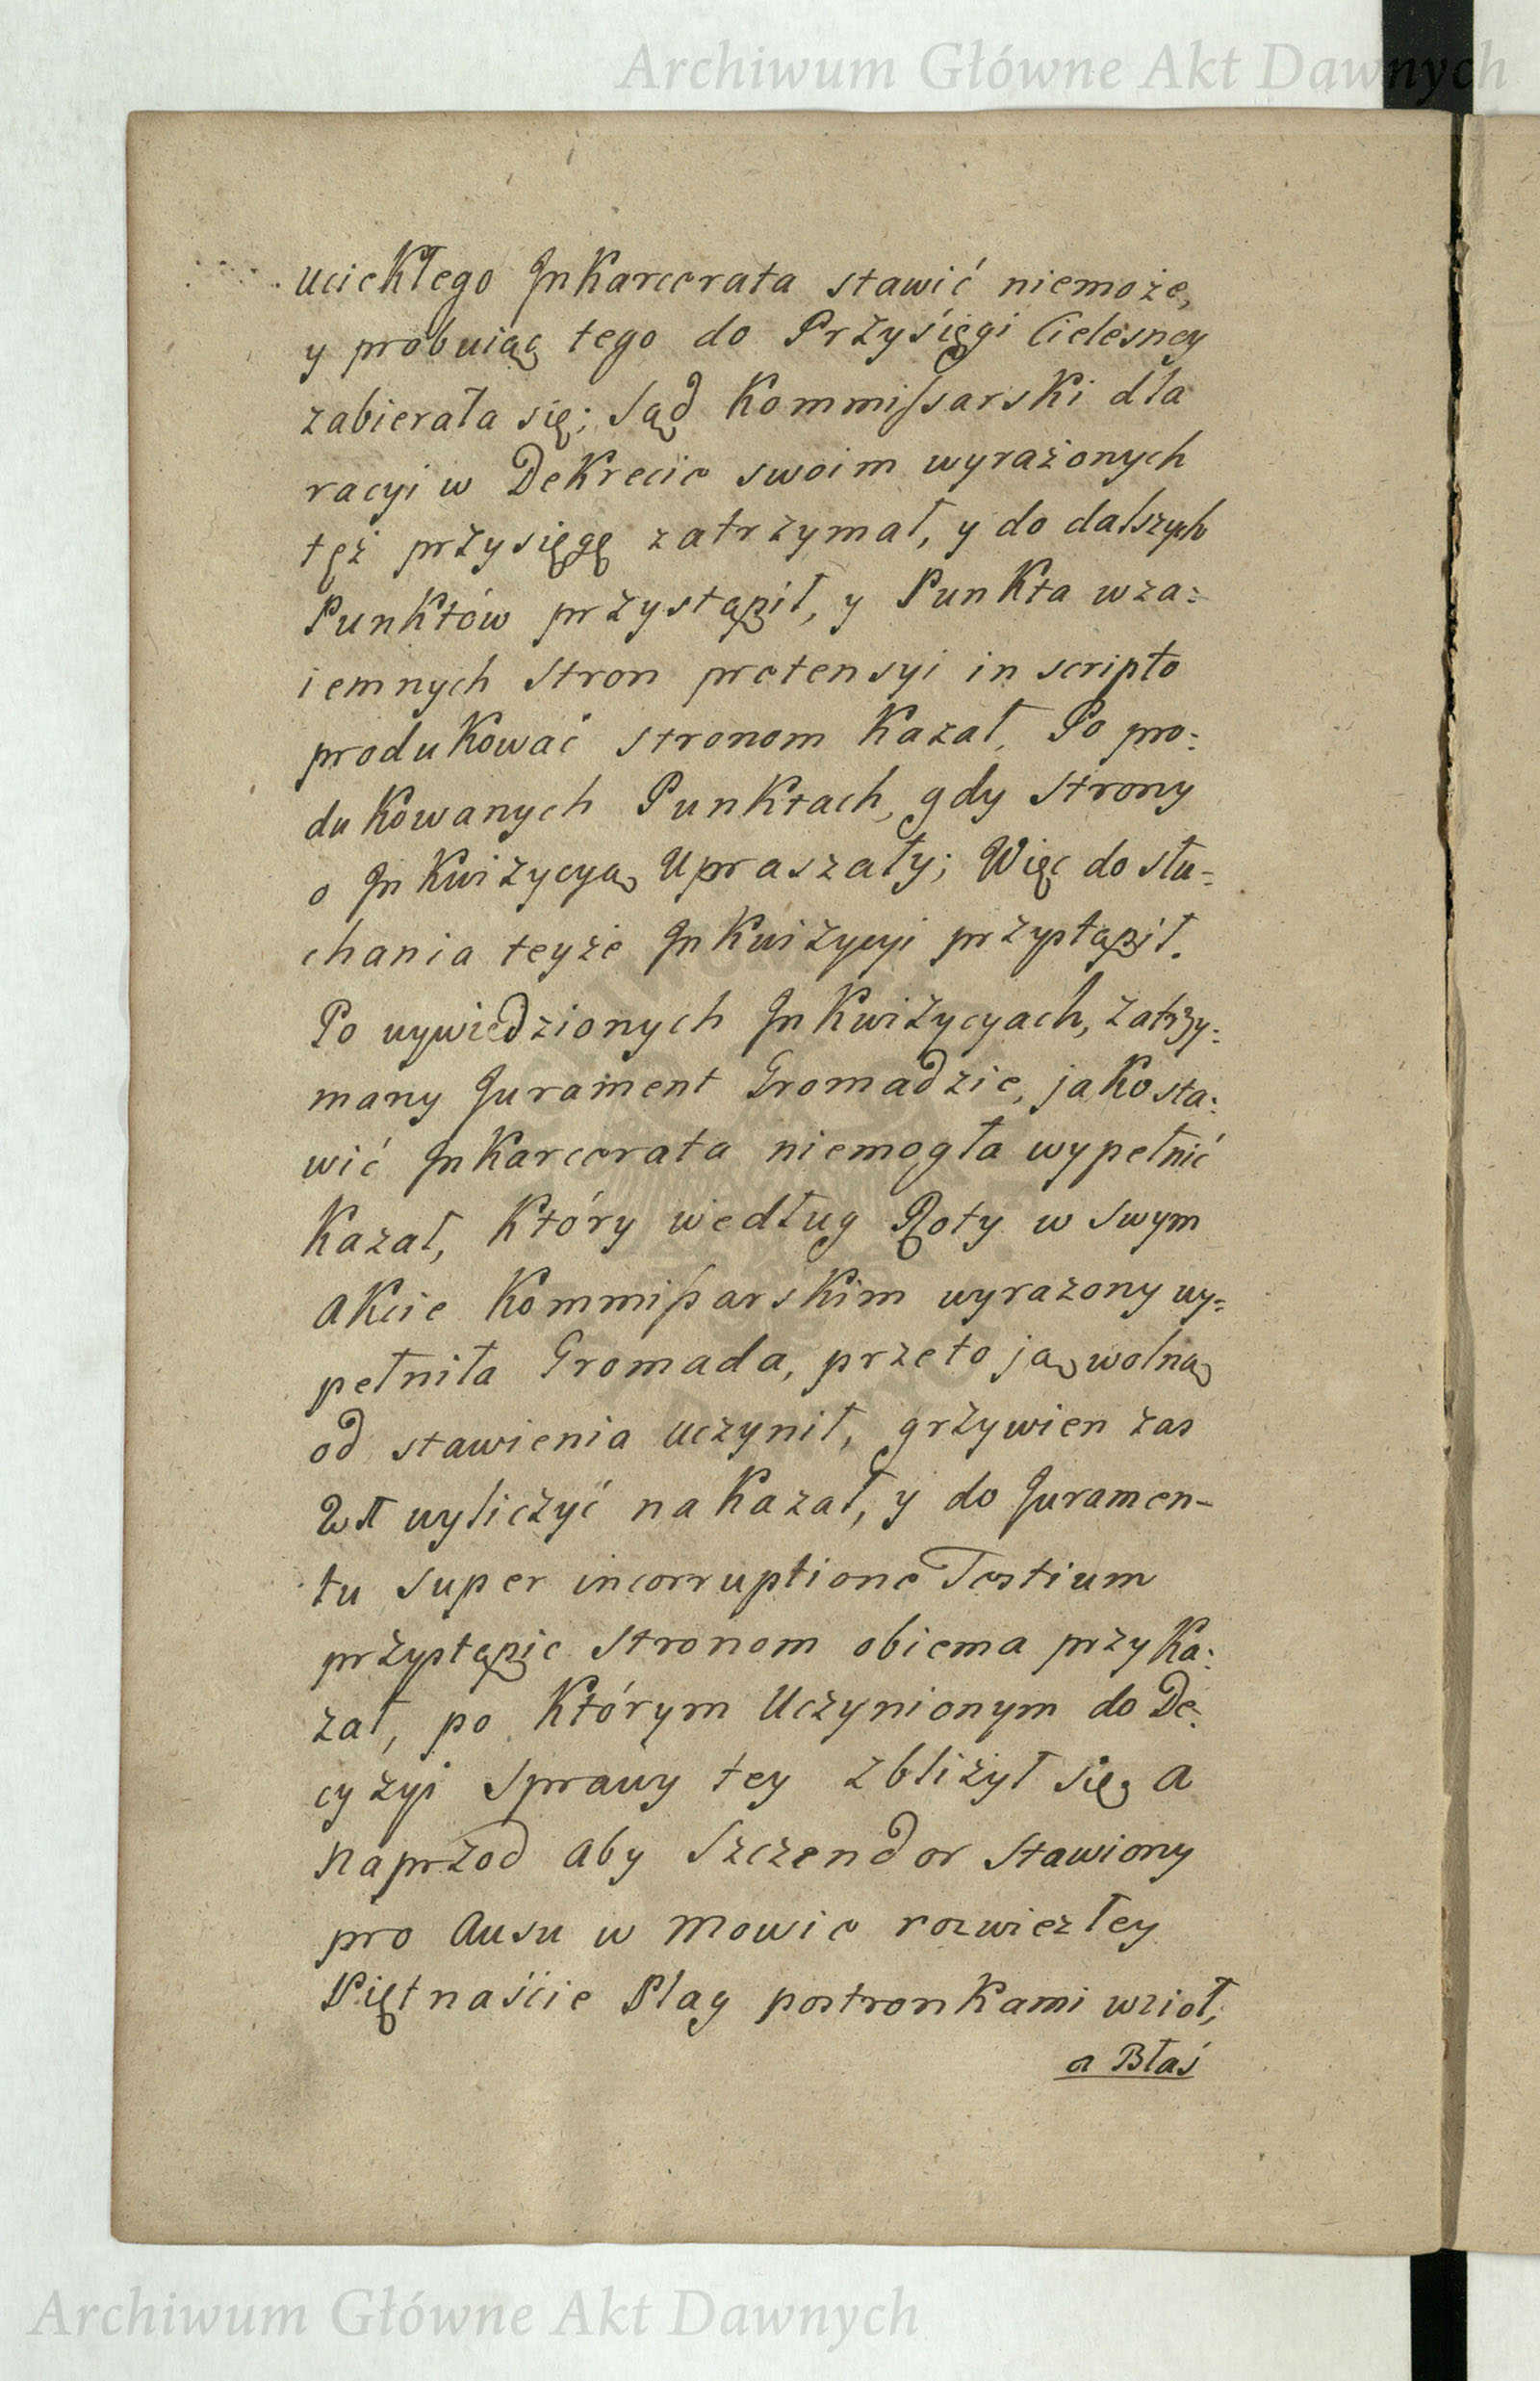 Archiwum Główne Akt Dawnych
uciekłego Inkarcerata stawić niemoże,
y probuiąc tego do Przysięgi Cielesney
zabierała się; Sąd Kommissarski dla
racyi w Dekrecie swoim wyrażonych
tęż przysięgę zatrzymał, y do dalszych
Punktów przystąpił, y Punkta wza:
iemnych Stron pretensyi in scripto
produkować stronom Kazał. Po pro:
dukowanych Punktach, gdy Strony
o Inkwizycyą Upraszały; Więc do słu=
chania teyże Inkwizycyi przystąpił.
Po wywiedzionych Inkwizycyach, zatrzy:
many Jurament Gromadzie, jako sta:
wić Inkarcerata niemogła wypełnić
Kazał, Który według Roty w Swym
Akcie Kommissarskim wyrazony wy=
pełniła Gromada, przeto ją wolną
od stawienia uczynił, grzywien zas
wyliczyć nakazał, y do Juramen-
tu super incorruptione Testium
przystąpic Stronom obiema przyka:
zał, po Którym Uczynionym do De:
cyzyi Sprawy tey zbliżył się, a
naprzod aby Szczendor Stawiony
pro Ausu w Mowie rozwiezłey
Piętnaście Plag postronkami wzioł,
a Błaś
Archiwum Główne Akt Dawnych